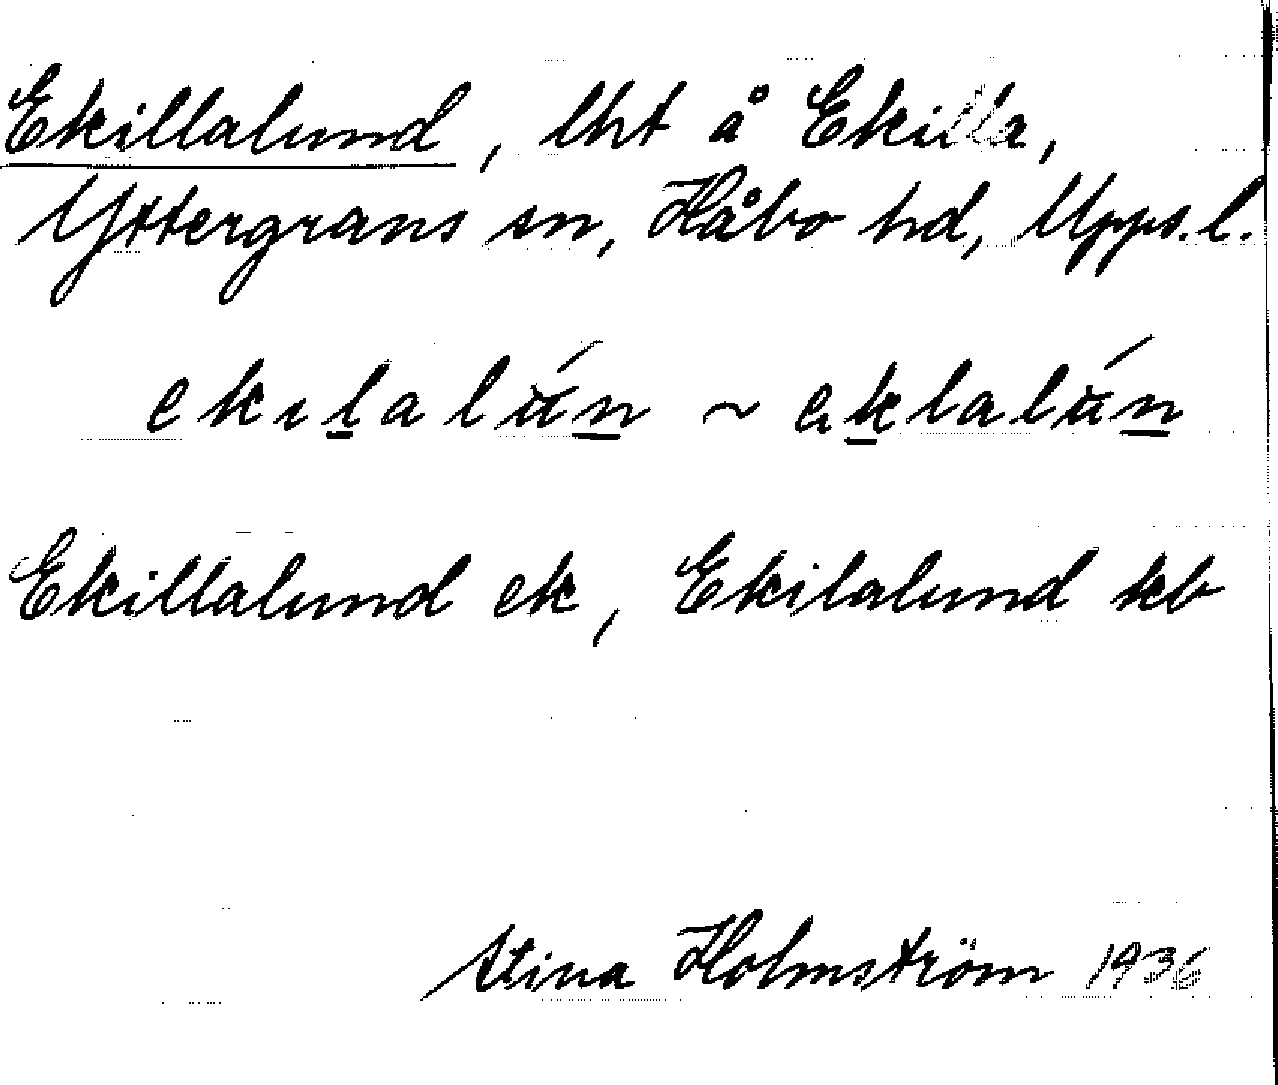 Ekillalund, lht å Ekilla,
Yttergrans sn, Håbo hd, Upps.l.
ekıl̲alún̲ ~ ek̲lalún̲
Ekillalund ek, Ekilalund kb
Stina Holmström 1936